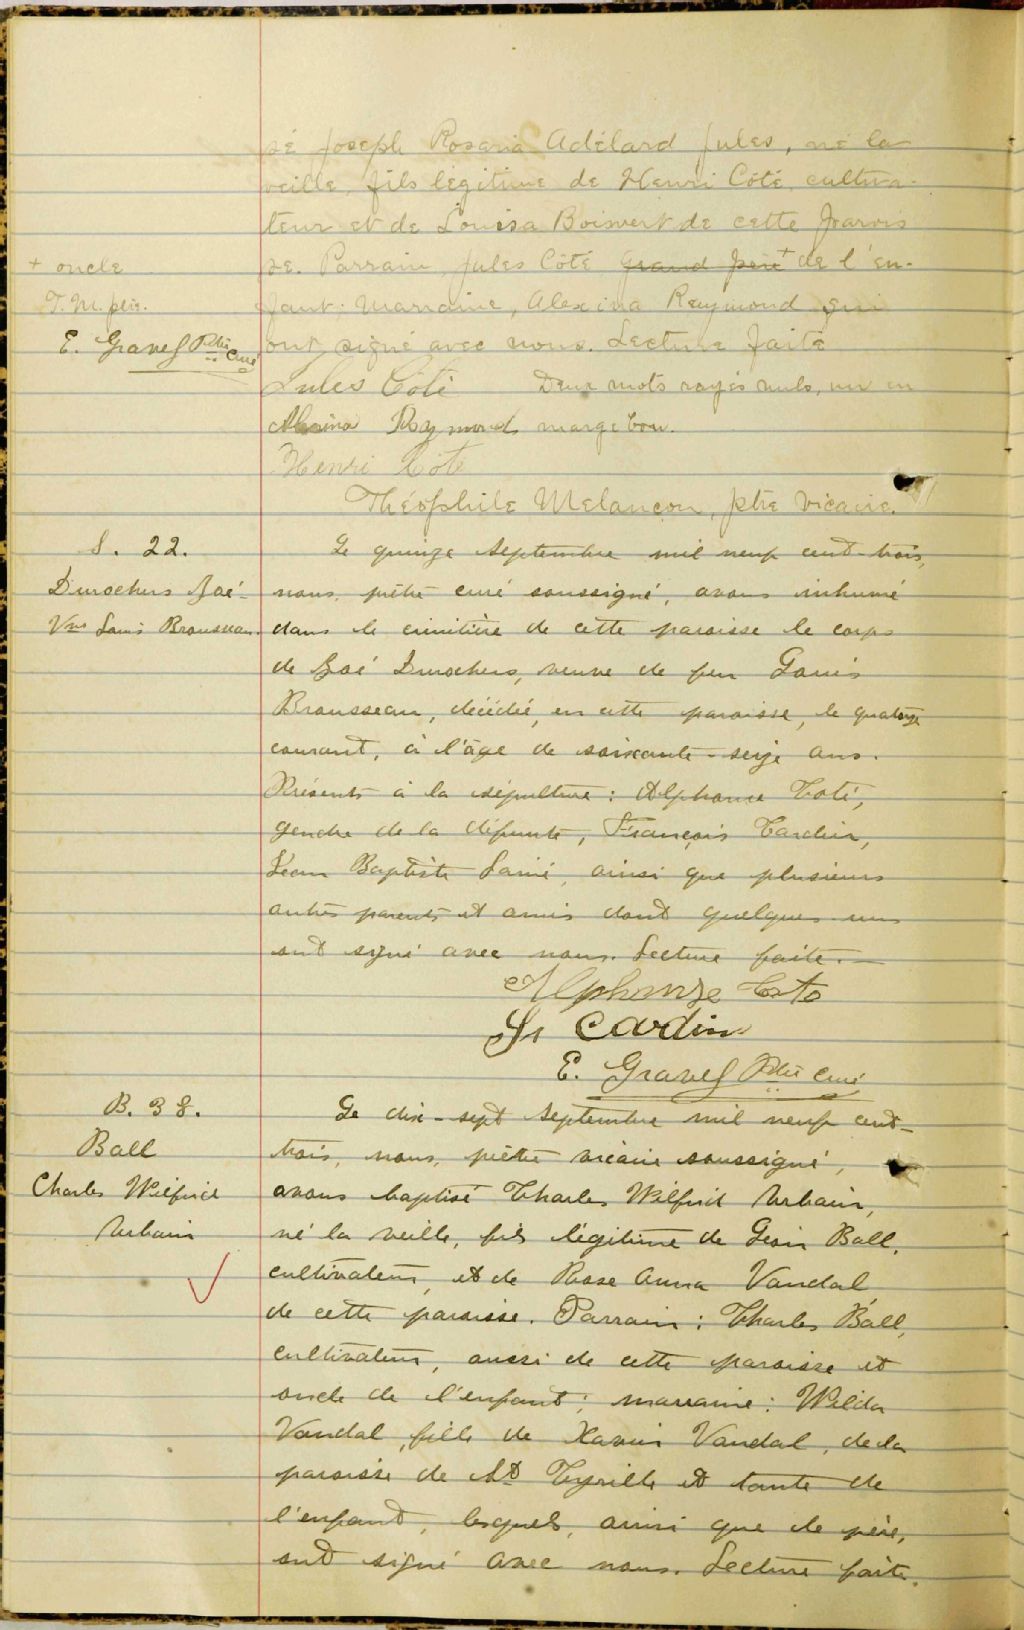 sé Joseph Rosario Adélard Jules, né la
veille, fils légitime de Henri Côté, cultiva-
teur et de Louisa Boisvert de cette parois
se. Parrain, Jules Côté Grand père + de l'en-
+ oncle
T. M. ptre.
fant; Marraine, Alexina Raymond qui
E. Gravel Ptre Curé
ont signé avec nous. Lecture faite
Jules Côté Deux mots rayés nuls, un en
Alexina Raymond marge bon.
Henri Côté
Théophile Melançon, ptre vicaire.
S. 22.
Durochers Zoé
Vve Louis Brousseau.
Le quinze Septembre mil neuf cent-trois,
nous, prêtre curé soussigné, avons inhumé
dans le cimitière de cette paroisse le corps
de Zoé Durochers, veuve de feu Louis
Brousseau, décédée, en cette paroisse, le quatorze
courant, à l'âge de soixante-seize ans.
Présents à la sépulture: Alphonse Coté,
gendre de la défunte, François Cardin,
Jean Baptiste Lainé, ainsi que plusieurs
autres parents et amis dont quelques-uns
ont signé avec nous. Lecture faite.—
Alphonse Coto
Fr Cardin
E. Gravel Ptre Curé
B. 38.
Ball
Charles Wilfrid
Urbain
Le dix-sept Septembre mil neuf cent-
trois, nous, prêtre vicaire soussigné,
avons baptisé Charles Wilfrid Urbain,
né la veille, fils légitime de Léon Ball,
cultivateur, et de Rose Anna Vandal
de cette paroisse. Parrain: Charles Ball,
cultivateur, aussi de cette paroisse et
oncle de l'enfant; marraine: Wilda
Vandal, fille de Xavier Vandal, de la
paroisse de St Cyrille et tante de
l'enfant, lesquels, ainsi que le père,
ont signé avec nous. Lecture faite.